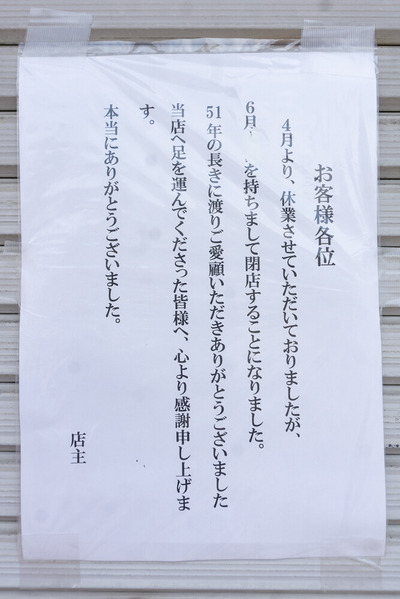 お客様各位
4月より、休業させていただいておりましたが、
6月 を持ちまして閉店することになりました。
51年の長きに渡りご愛顧いただきありがとうございました
当店へ足を運んでくださった皆様へ、心より感謝申し上げま
す。
本当にありがとうございました。
店主